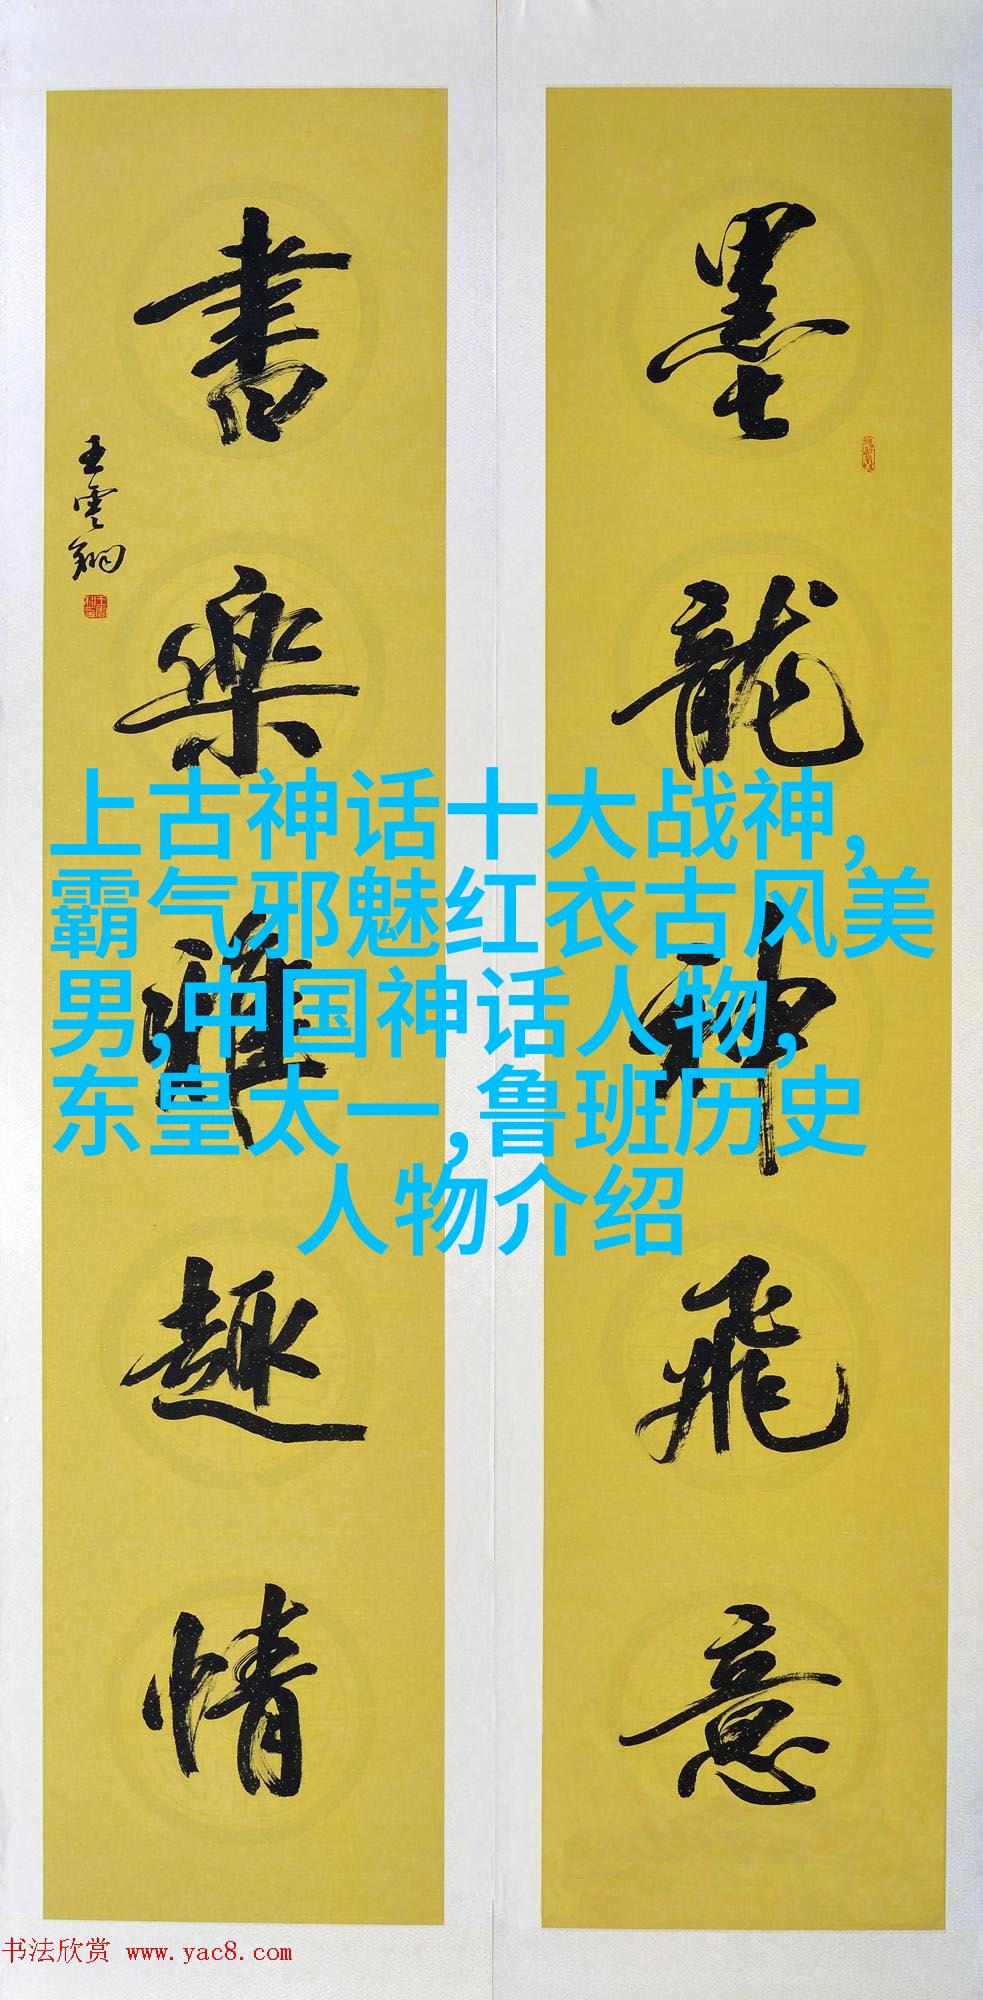 墨龍神飛意
書樂雅趣情
王雲翔
上古神话十大战神,
霸气邪魅红衣古风美
男,中国神话人物,
东皇太一,鲁班历史
人物介绍
书法欣赏 www.yac8.com